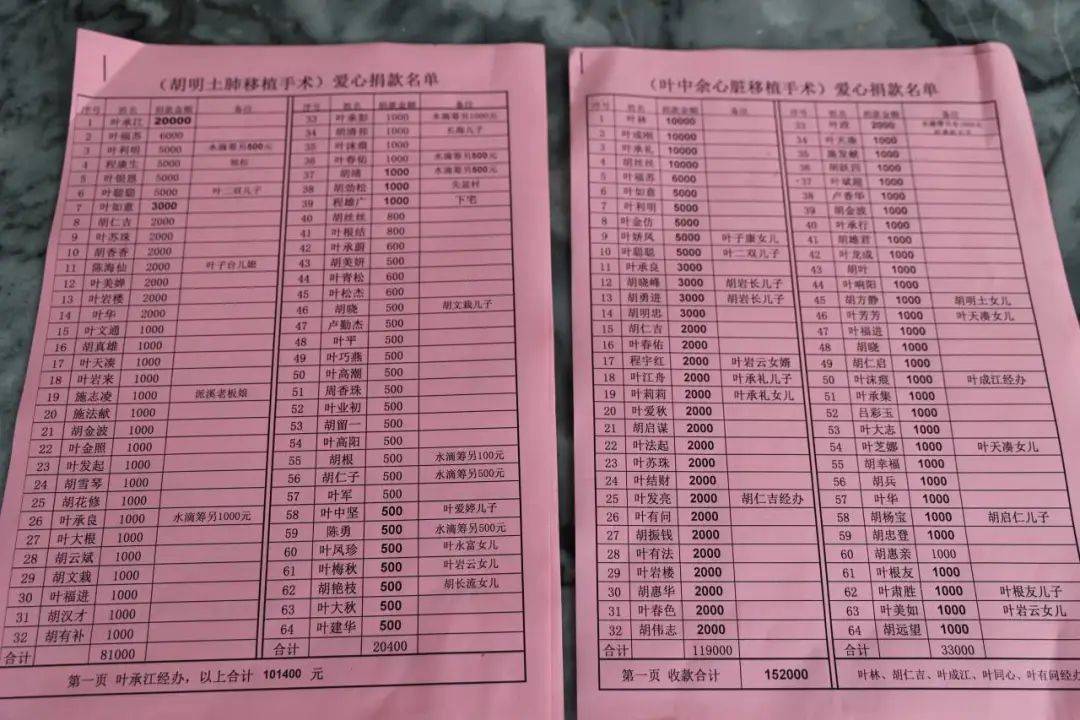 （胡明土肺移植手术）爱心捐款名单
序号 姓名 捐款金额 备注
1 叶承江 20000
2 叶福苏 6000
3 叶利明 5000 水滴筹另500元
4 程康生 5000
5 叶银恩 5000
6 叶聪聪 5000 叶二双儿子
7 叶如意 3000
8 胡仁吉 2000
9 叶苏珠 2000
10 胡香香 2000
11 陈海仙 2000 叶子台儿媳
12 叶美婵 2000
13 叶岩楼 2000
14 叶华 2000
15 叶文通 1000
16 胡真雄 1000
17 叶天凑 1000
18 叶岩来 1000
19 施志凌 1000 派溪老板娘
20 施法献 1000
21 胡金波 1000
22 叶金照 1000
23 叶发起 1000
24 胡雪琴 1000
25 胡花修 1000
26 叶承良 1000 水滴筹另1000元
27 叶大根 1000
28 胡云斌 1000
29 胡文栽 1000
30 叶福进 1000
31 胡汉才 1000
32 胡有补 1000
合计 81000
序号 姓名 捐款金额 备注
33 叶承彭 1000 水滴筹另1000元
34 胡清祥 1000 长海儿子
35 叶沫痕 1000
36 叶春佑 1000 水滴筹另500元
37 胡靖 1000 水滴筹另500元
38 胡劲松 1000
39 程雄广 1000 下宅
40 胡丝丝 800
41 叶根结 800
42 叶承蔚 600
43 胡美妍 500
44 叶青松 600
45 叶松杰 600
46 胡晓 500 胡文栽儿子
47 卢勤杰 500
48 叶平 500
49 叶巧燕 500
50 叶高潮 500
51 周香珠 500
52 叶业初 500
53 胡留一 500
54 叶高阳 500
55 胡根 500 水滴筹另100元
56 胡仁子 500 水滴筹另500元
57 叶军 500
58 叶中坚 500 叶爱婷儿子
59 陈勇 500 水滴筹另500元
60 叶风珍 500 叶永富女儿
61 叶梅秋 500 叶岩云女儿
62 胡艳枝 500 胡长流女儿
63 叶大秋 500
64 叶建华 500
合计 20400
第一页 叶承江经办，以上合计 101400 元
（叶中余心脏移植手术）爱心捐款名单
序号 姓名 捐款金额 备注
1 叶林 10000
2 叶成刚 10000
3 叶承礼 10000
4 胡丝丝 10000
5 叶福苏 6000
6 叶如意 5000
7 叶利明 5000
8 叶金仿 5000
9 叶娇风 5000 叶子康女儿
10 叶聪聪 5000 叶二双儿子
11 叶承良 3000
12 胡晓峰 3000 胡岩长儿子
13 胡勇进 3000 胡岩长儿子
14 胡明忠 3000
15 胡仁吉 2000
16 叶春佑 2000
17 程宇红 2000 叶岩云女婿
18 叶江舟 2000 叶承礼儿子
19 叶莉莉 2000 叶承礼女儿
20 叶爱秋 2000
21 胡启谋 2000
22 叶法起 2000
23 叶苏珠 2000
24 叶结财 2000
25 叶发亮 2000 胡仁吉经办
26 叶有问 2000
27 胡振钱 2000
28 叶有法 2000
29 叶岩楼 2000
30 胡惠华 2000
31 叶春色 2000
32 胡伟志 2000
合计 119000
序号 姓名 捐款金额 备注
33 叶政 2000
34 叶天凑 1000
35 施发献 1000
36 胡跃四 1000
37 叶斌超 1000
38 卢香华 1000
39 胡金波 1000
40 叶承行 1000
41 胡雄君 1000
42 叶龙成 1000
43 胡叶 1000
44 叶响阳 1000
45 胡方静 1000 胡明土女儿
46 叶芳芳 1000 叶天凑女儿
47 叶福进 1000
48 胡晓 1000
49 胡仁启 1000
50 叶沫痕 1000 叶成江经办
51 叶承集 1000
52 吕彩玉 1000
53 叶大志 1000
54 叶芝娜 1000 叶天凑女儿
55 胡幸福 1000
56 胡兵 1000
57 叶华 1000
58 胡杨宝 1000 胡启仁儿子
59 胡忠登 1000
60 胡惠亲 1000
61 叶根友 1000
62 叶肃胜 1000 叶根友儿子
63 叶美如 1000 叶岩云女儿
64 胡远望 1000
合计 33000
第一页 收款合计 152000 叶林、胡仁吉、叶成江、叶同心、叶有问经办